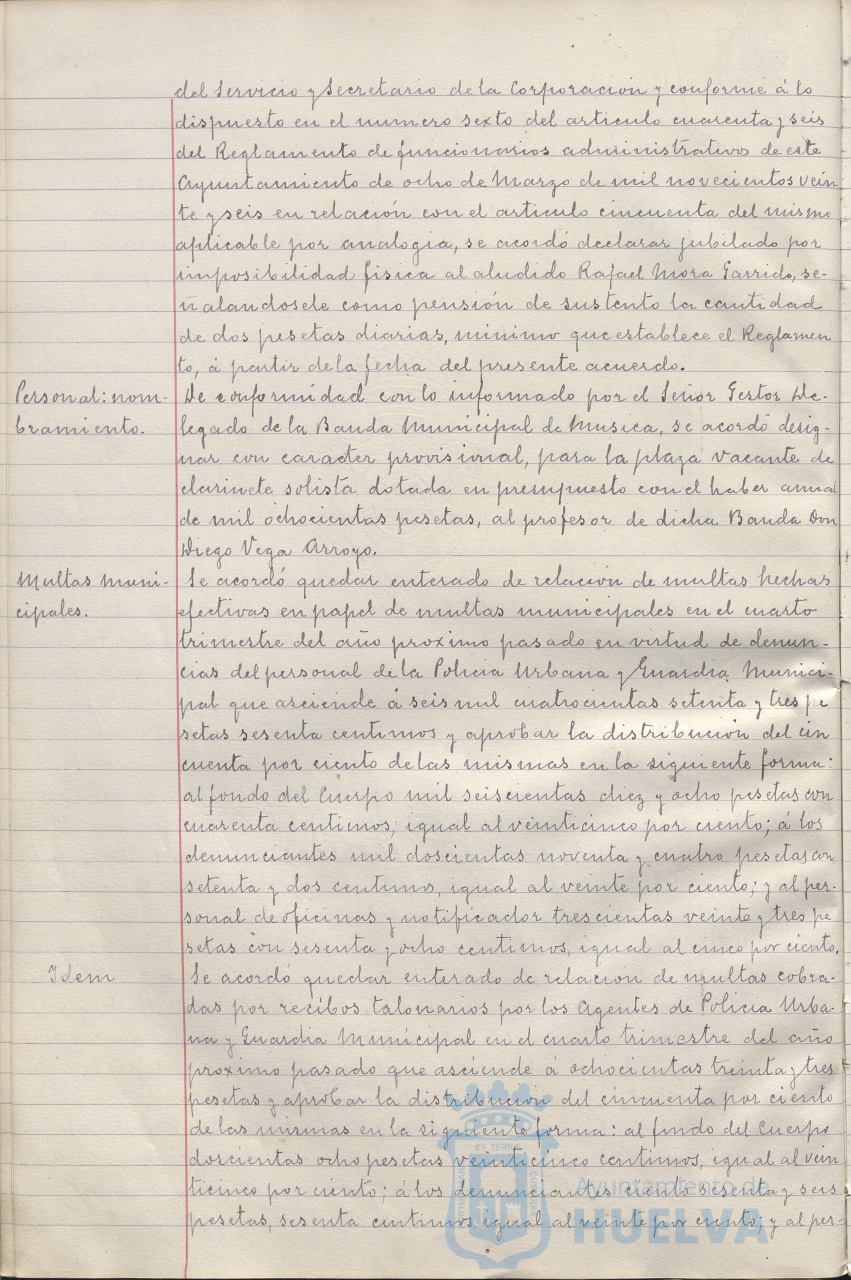 del Servicio y Secretario de la Corporación y conforme á lo
dispuesto en el numero sexto del articulo cuarenta y seis
del Reglamento de funcionarios administrativos de este
Ayuntamiento de ocho de Marzo de mil novecientos vein
te y seis en relación con el articulo cincuenta del mismo
aplicable por analogia, se acordó declarar jubilado por
imposibilidad fisica al aludido Rafael Mora Garrido, se-
ñalandosele como pensión de sustento la cantidad
de dos pesetas diarias, minimo que establece el Reglamen
to, á partir de la fecha del presente acuerdo.
Personal: nom-
bramiento.
De conformidad con lo informado por el Señor Gestor De-
legado de la Banda Municipal de Musica, se acordó desig-
nar con caracter provisional, para la plaza vacante de
clarinete solista dotada en presupuesto con el haber anual
de mil ochocientas pesetas, al profesor de dicha Banda Don
Diego Vega Arroyo.
Multas muni-
cipales.
Se acordó quedar enterado de relación de multas hechas
efectivas en papel de multas municipales en el cuarto
trimestre del año proximo pasado en virtud de denun-
cias del personal de la Policia Urbana y Guardia Munici-
pal que asciende á seis mil cuatrocientas setenta y tres pe
setas sesenta centimos y aprobar la distribución del cin
cuenta por ciento de las mismas en la siguiente forma:
al fondo del Cuerpo mil seiscientas diez y ocho pesetas con
cuarenta centimos, igual al veinticinco por ciento; á los
denunciantes mil doscientas noventa y cuatro pesetas con
setenta y dos centimos, igual al veinte por ciento; y al per-
sonal de oficinas y notificador trescientas veinte y tres pe
setas con sesenta y ocho centimos, igual al cinco por ciento.
Idem
Se acordó quedar enterado de relación de multas cobra-
das por recibos talonarios por los Agentes de Policia Urba-
na y Guardia Municipal en el cuarto trimestre del año
proximo pasado que asciende á ochocientas treinta y tres
pesetas y aprobar la distribución del cincuenta por ciento
de las mismas en la siguiente forma: al fondo del Cuerpo
doscientas ocho pesetas veinticinco centimos, igual al vein
ticinco por ciento; á los denunciantes ciento sesenta y seis
pesetas, sesenta centimos igual al veinte por ciento; y al per-
Ayuntamiento de
HUELVA